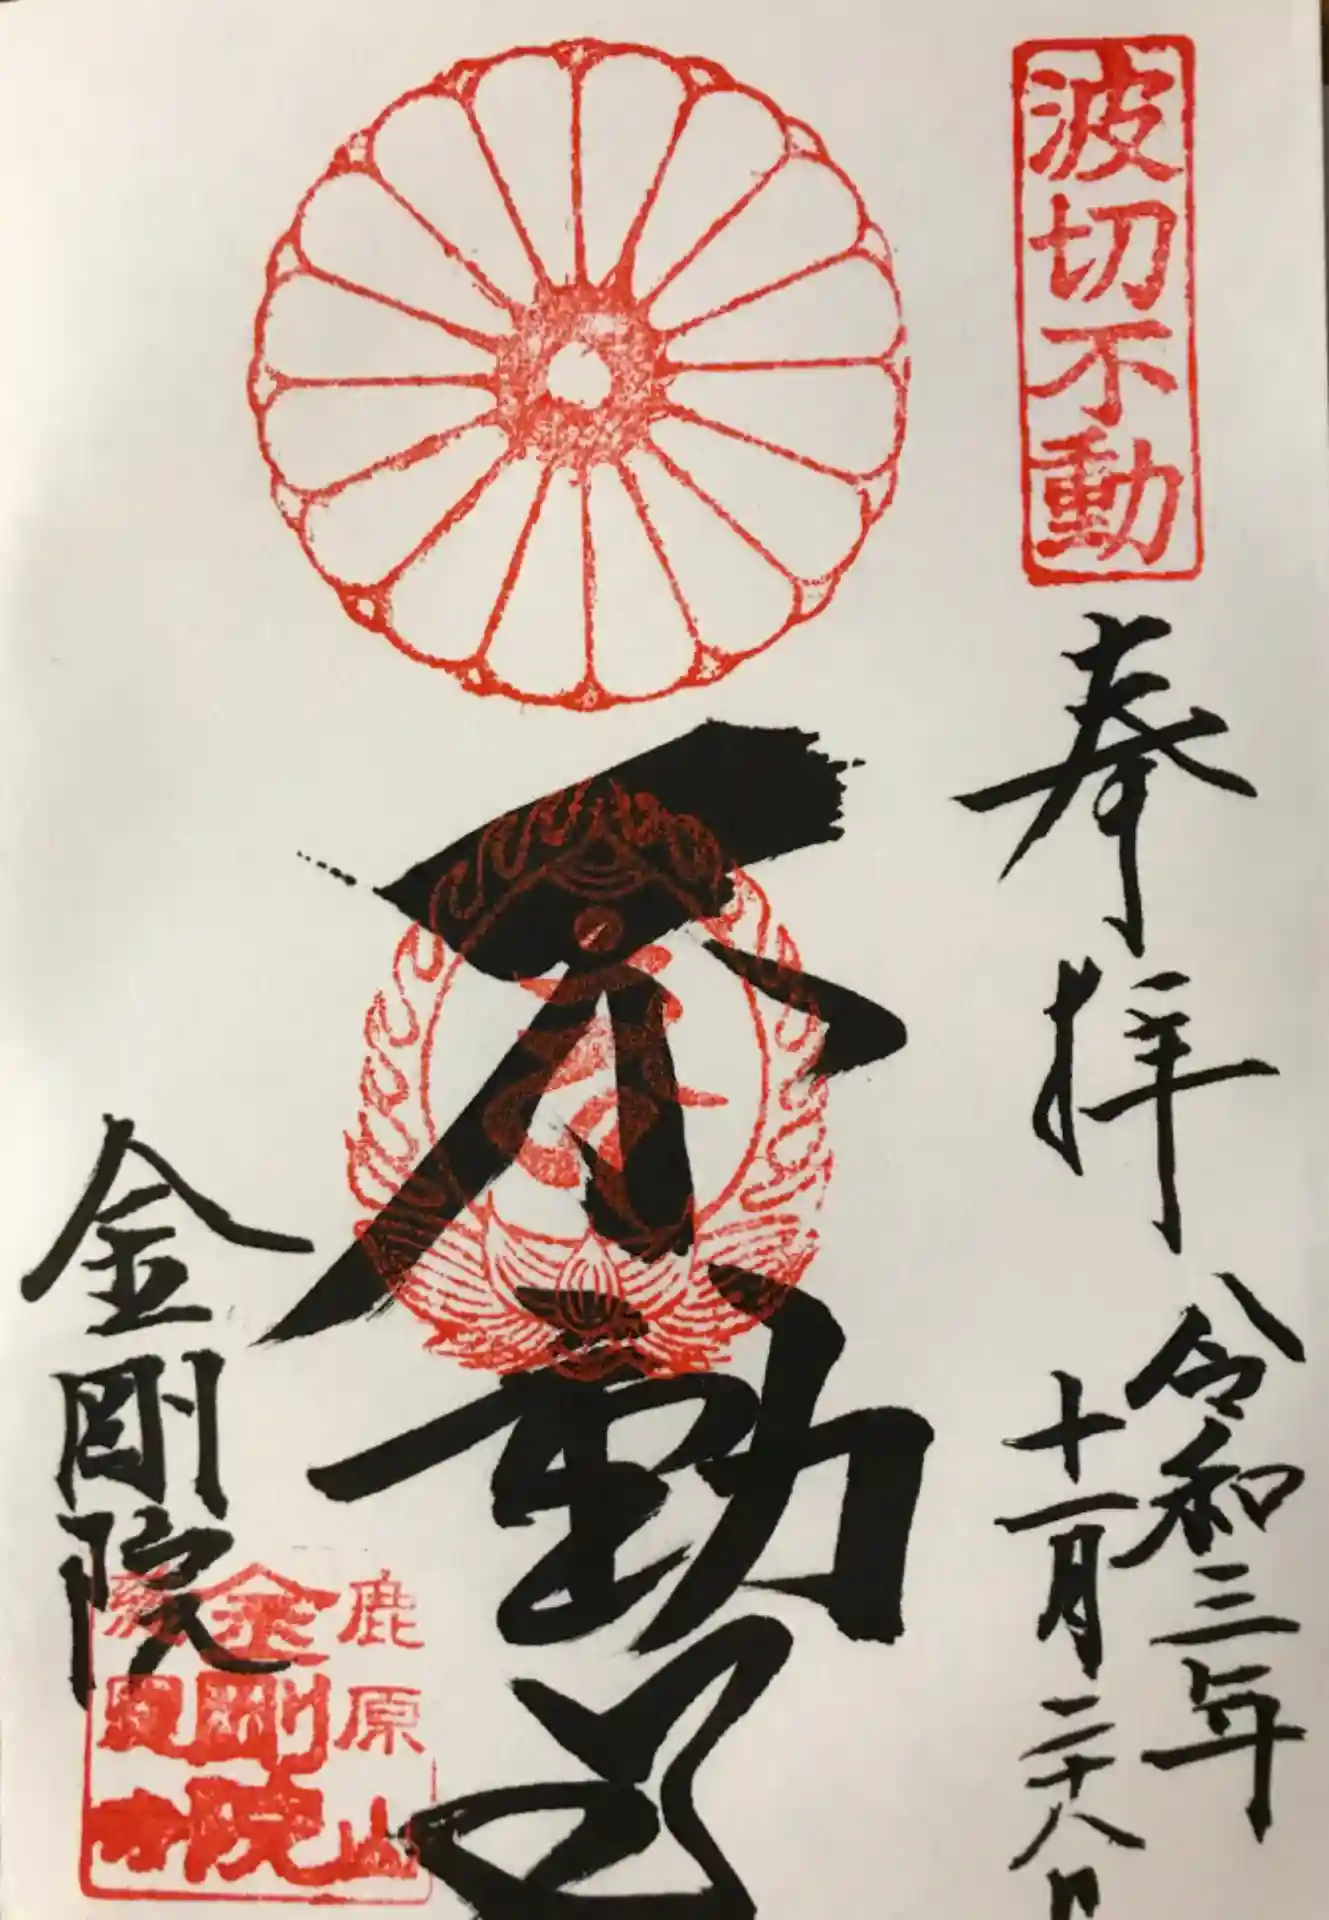 波切不動
奉拝
令和三年
十一月二十八日
不動尊
金剛院
鹿原山
金剛院
慈恩寺